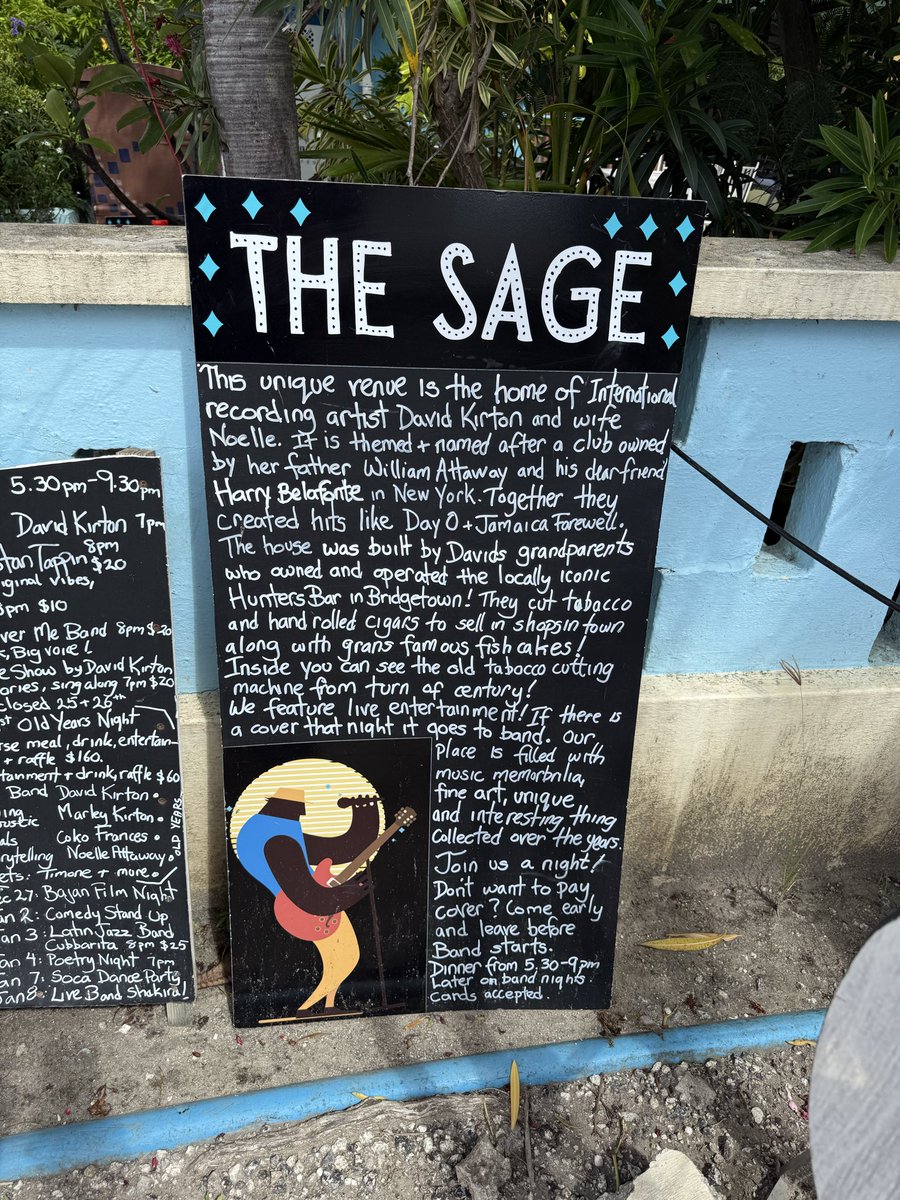 THE SAGE
This unique venue is the home of International
recording artist David Kirton and wife
Noelle. It is themed + named after a club owned
by her father William Attaway and his dear friend
Harry Belafonte in New York. Together they
created hits like Day O + Jamaica Farewell.
The house was built by Davids grandparents
who owned and operated the locally iconic
Hunters Bar in Bridgetown! They cut tobacco
and hand rolled cigars to sell in shops in town
along with grans famous fish cakes!
Inside you can see the old tabocco cutting
machine from turn of century!
We feature live entertainment! If there is
a cover that night it goes to band. Our
Place is filled with
music memorbilia,
fine art, unique
and interesting thing
collected over the years.
Join us a night!
Don't want to pay
cover? Come early
and leave before
Band starts.
Dinner from 5.30-9pm
Later on band nights.
Cards accepted.
5.30pm-9.30pm
David Kirton 7pm
Tappin 8pm $20
vibes,
8pm $10
Me Band 8pm $20
Big voice!
Show by David Kirton
sing along 7pm $20
closed 25 + 26th
Old Years Night
meal, drink, entertain-
+ raffle $160.
+ drink, raffle $60
Band David Kirton.
Marley Kirton.
Coko Frances.
Noelle Attaway.
OLD YEARS
Timone + more.
27: Bajan Film Night
2: Comedy Stand Up
3: Latin Jazz Band
Cubbarita 8pm $25
4: Poetry Night 7pm
7: Soca Dance Party
8: Live Band Shakira!